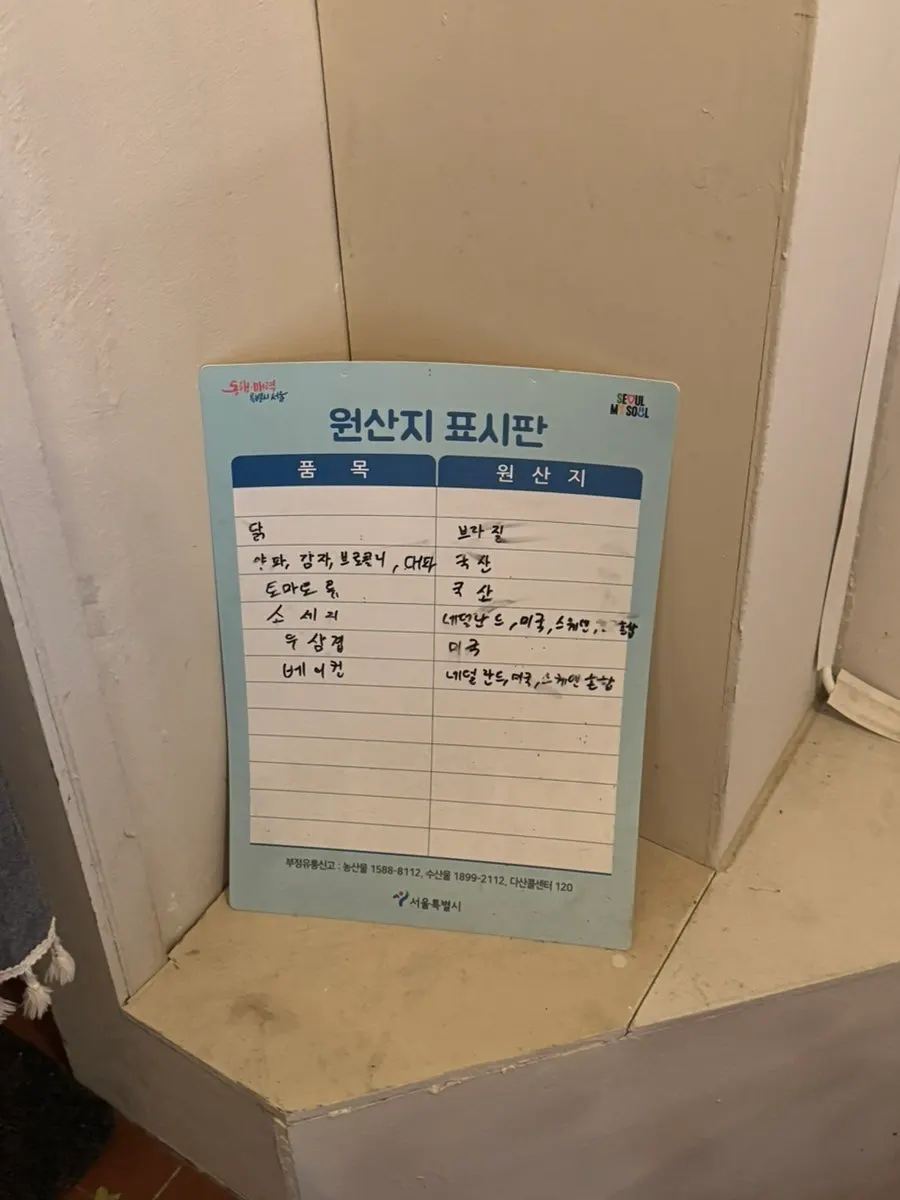 동행·매력
특별시 서울
SEOUL
MY SOUL
원산지 표시판
품 목 원 산 지
닭 브라질
양파, 감자, 브로콜리, 대파 국산
토마토 류 국산
소세지 네덜란드, 미국, 스페인, 혼합
우삼겹 미국
베이컨 네덜란드, 미국, 스페인 혼합
부정유통신고 : 농산물 1588-8112, 수산물 1899-2112, 다산콜센터 120
서울특별시